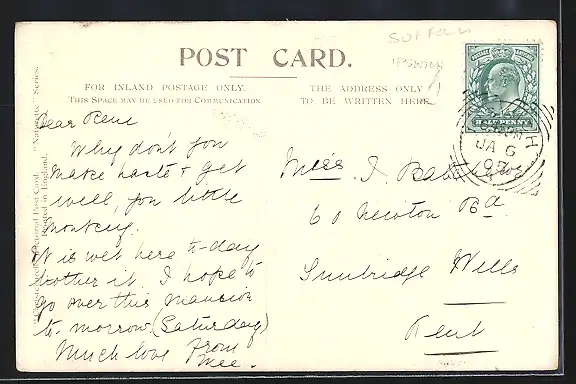 Suffolk
Ipswich
POST CARD.
FOR INLAND POSTAGE ONLY.
THIS SPACE MAY BE USED FOR COMMUNICATION
THE ADDRESS ONLY
TO BE WRITTEN HERE.
HALFPENNY
JA 6
07
"Naturette" Series.
Printed in England.
Dear Rene
Why don't you
make haste & get
well, you little
monkey.
It is wet here to-day
bother it. I hope to
go over this mansion
to-morrow (Saturday)
Much love from
Miss I.
60 Newton Rd
Tunbridge Wells
Kent